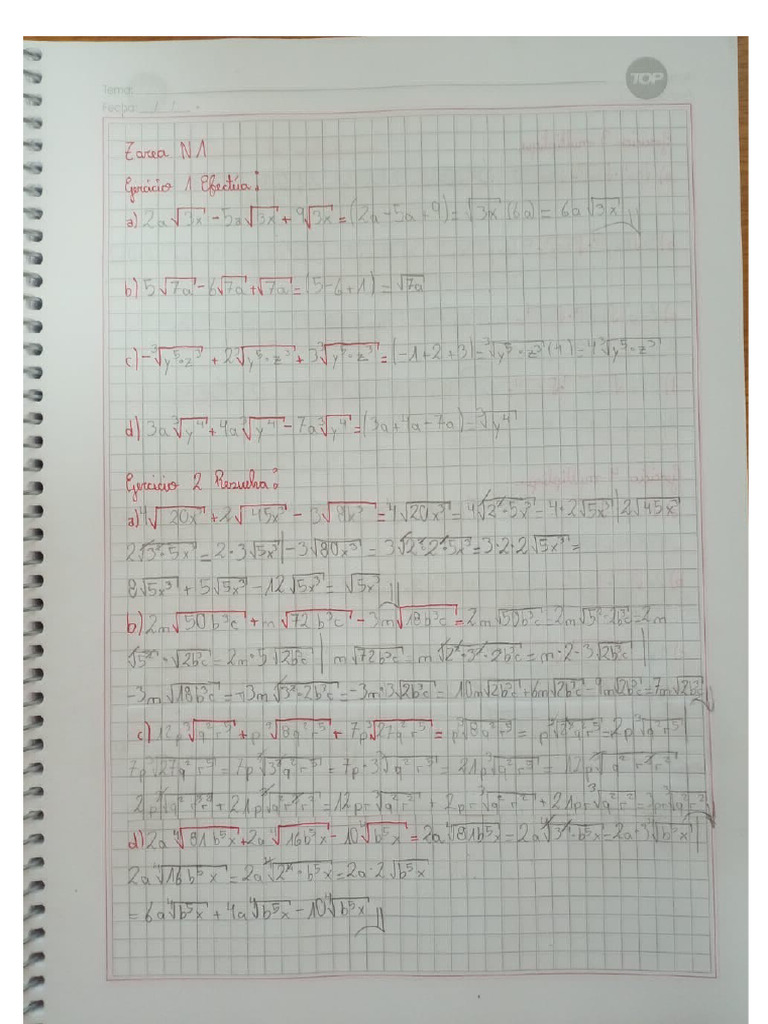 TOP
Tema:
Fecha: / /
Tarea N1
Ejercicio 1 Efectúa:
a) 2a√3x - 5a√3x + 9√3x = (2a - 5a + 9) = √3x (6a) = 6a√3x
b) 5√7a - 6√7a + √7a = (5 - 6 + 1) = √7a
c) -³√y⁵·z³ + 2³√y⁵·z³ + 3³√y⁵·z³ = (-1 + 2 + 3) = ³√y⁵·z³ (4) = 4³√y⁵·z³
d) 3a³√y⁴ + 4a³√y⁴ - 7a³√y⁴ = (3a + 4a - 7a) = ³√y⁴
Ejercicio 2 Resuelva:
a) 4√20x³ + 2√45x³ - 3√ x³ = 4√20x³ = 4√2²·5x³ = 4·2√5x³ | 2√45x³
2√3²·5x³ = 2·3√5x³ | -3√80x³ = 3√2²·2²·5x³ = 3·2·2√5x³ =
8√5x³ + 5√5x³ - 12√5x³ = √5x³
b) 2m√50b³c + m√72b³c - 3m√18b³c = 2m√50b³c = 2m√5²·2b³c = 2m
√5²·√2b³c = 2m·5√2b³c | m√72b³c = m√2²·3²·2b³c = m·2·3√2b³c |
-3m√18b³c = -3m√3²·2b³c = -3m·3√2b³c = 10m√2b³c + 6m√2b³c - 9m√2b³c = 7m√2b³c
c) 12p³√q²r⁵ + p³√8q²r⁵ + 7p³√27q²r⁵ = p³√8q²r⁵ = p³√2³q²r⁵ = 2p³√q²r⁵ |
7p³√27q²r⁵ = 7p³√3³q²r⁵ = 7p·3³√q²r⁵ = 21p³√q²r⁵ = 12p³√q²r³r²
2p³√q²r³r² + 21p³√q²r³r² = 12pr³√q²r² + 2pr³√q²r² + 21pr³√q²r² = ³√q²r²
d) 2a⁴√81b⁵x + 2a⁴√16b⁵x - 10⁴√b⁵x = 2a⁴√81b⁵x = 2a⁴√3⁴·b⁵x = 2a·3⁴√b⁵x |
2a⁴√16b⁵x = 2a⁴√2⁴·b⁵x = 2a·2√b⁵x
= 6a⁴√b⁵x + 4a⁴√b⁵x - 10⁴√b⁵x